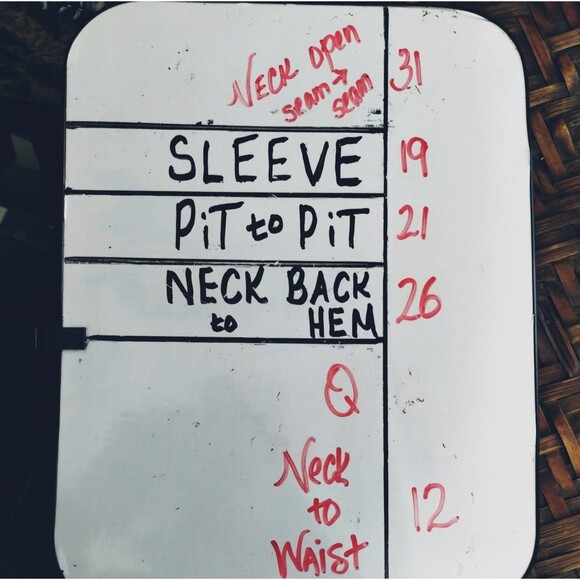 Neck open 31
seam → seam
SLEEVE 19
PiT to PiT 21
NECK BACK 26
to HEM
Q
Neck
to
Waist 12